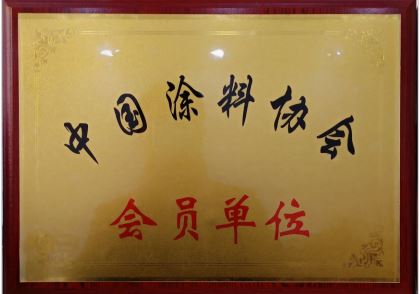 中国涂料协会
会员单位